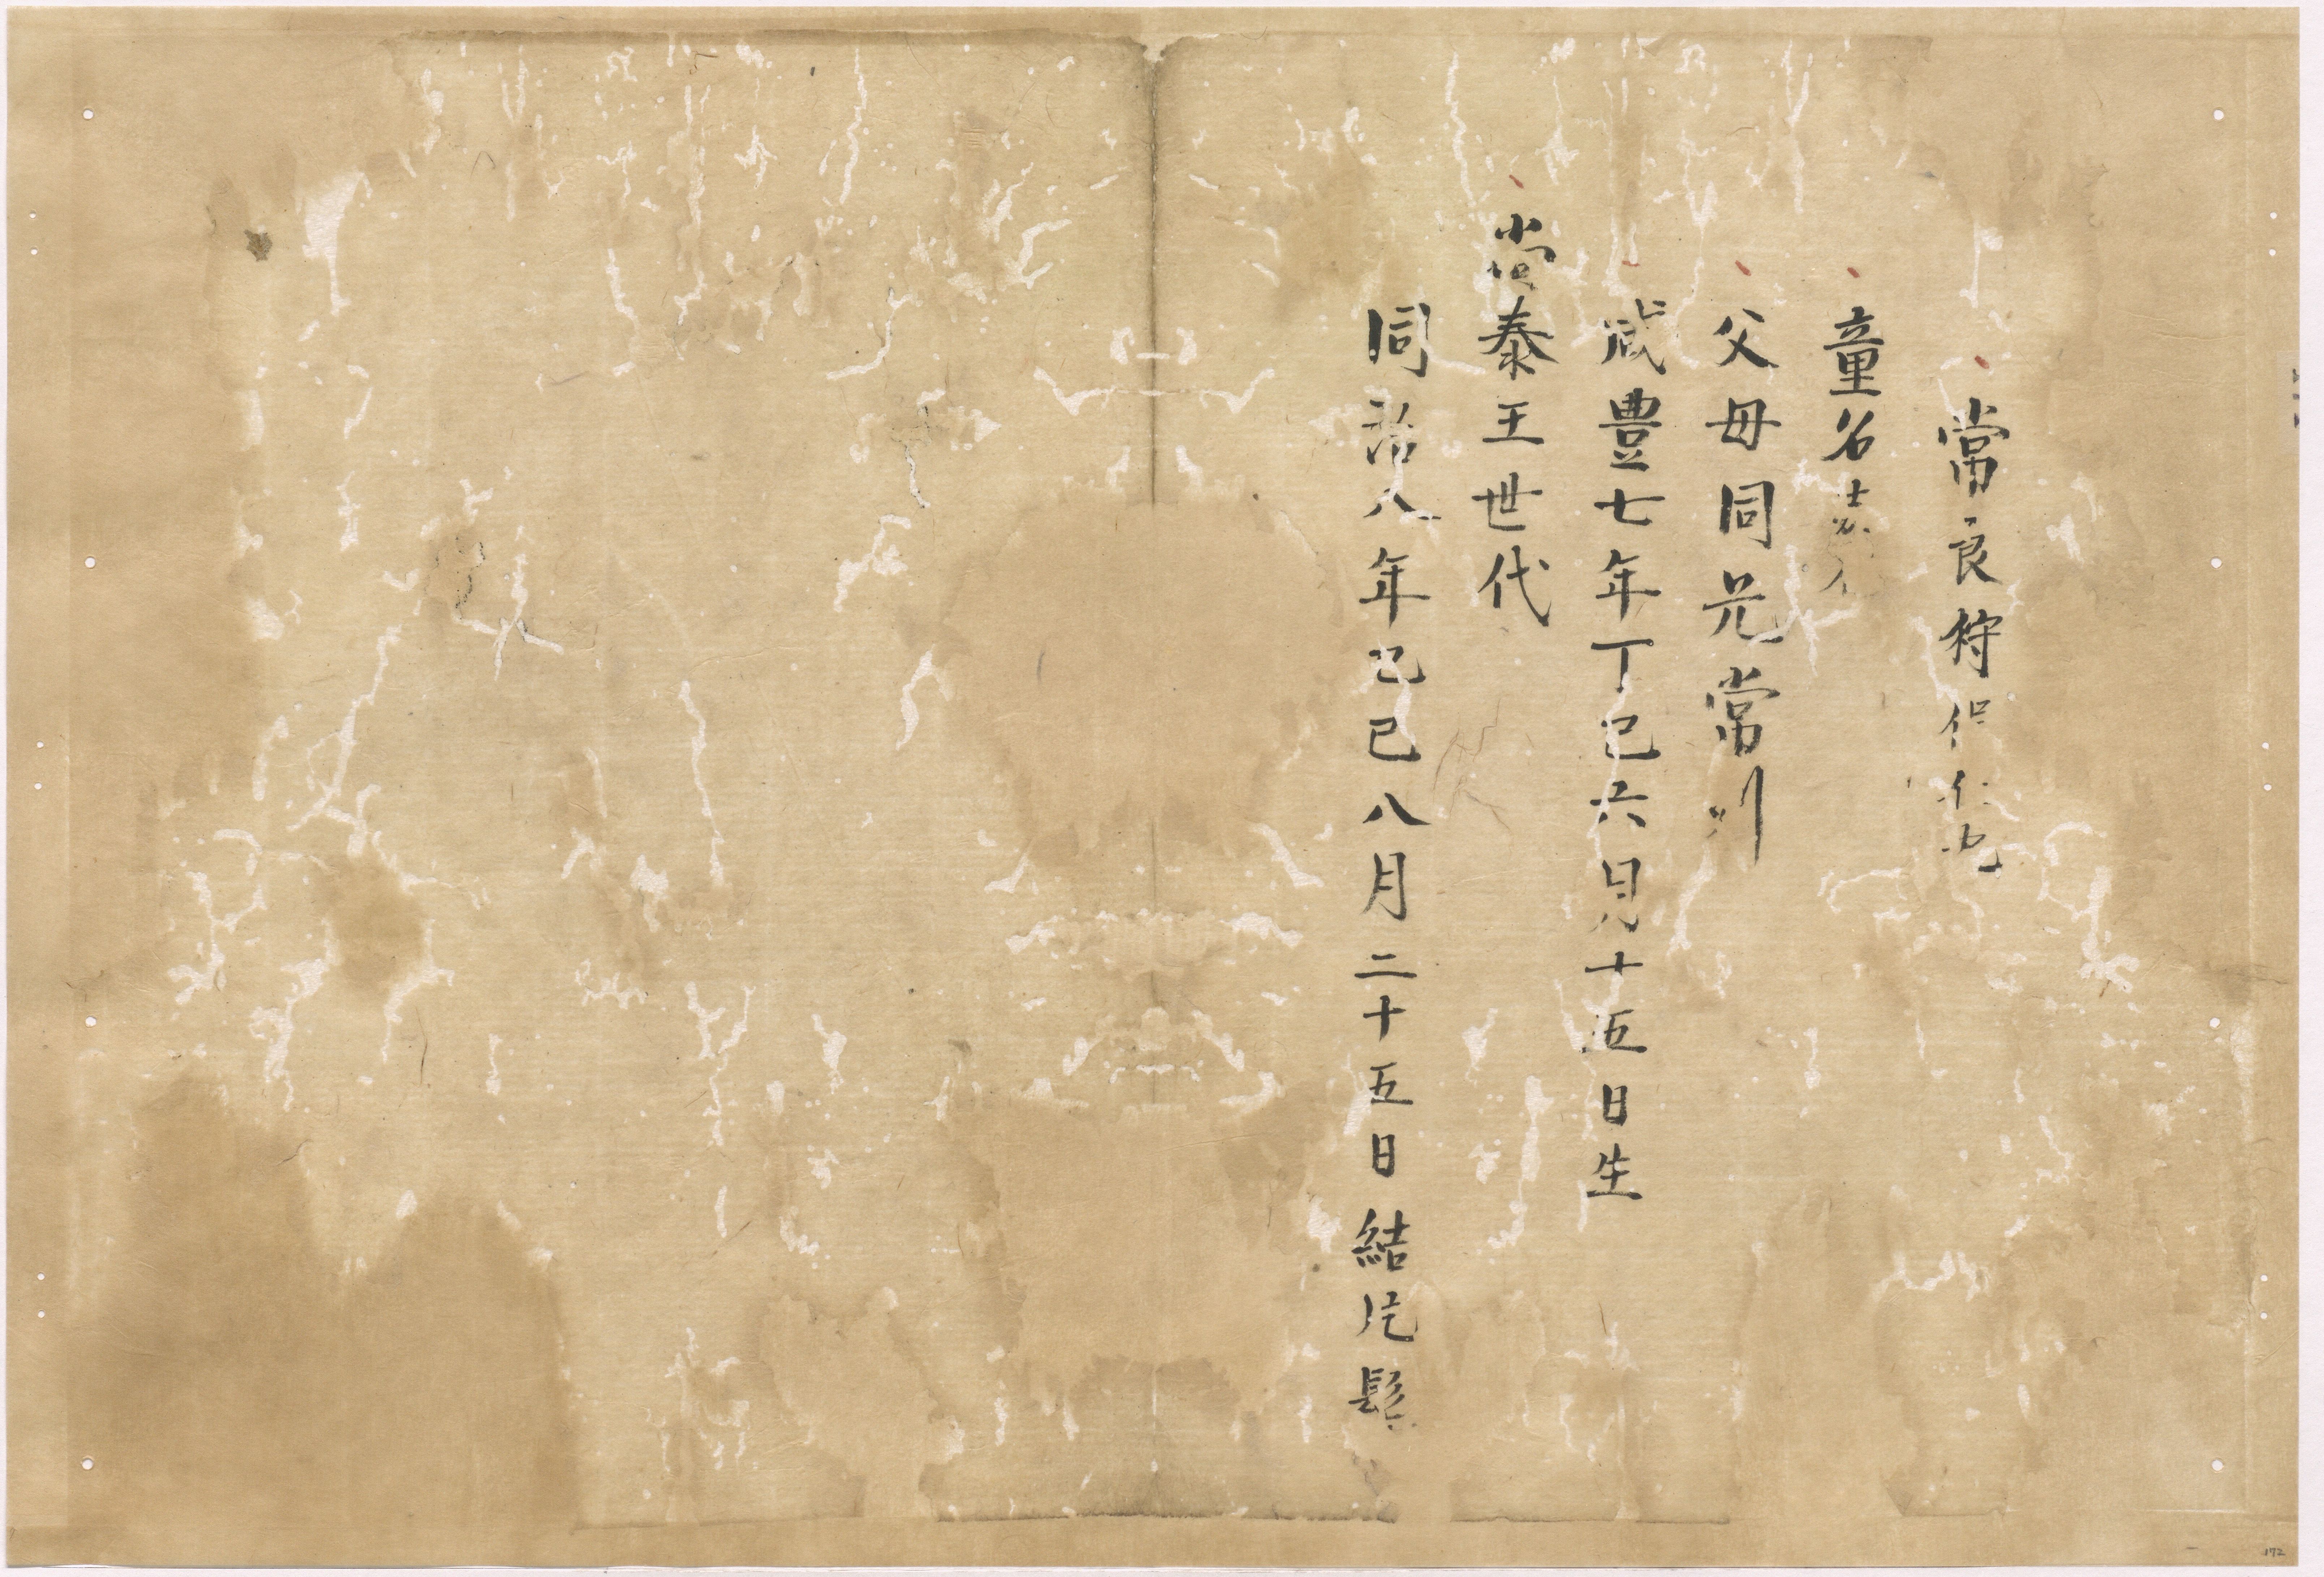 常良狩俣仁也
童名
父母同兄常川
咸豊七年丁巳六月十五日生
尚泰王世代
同治八年己巳八月二十五日結片髻
172